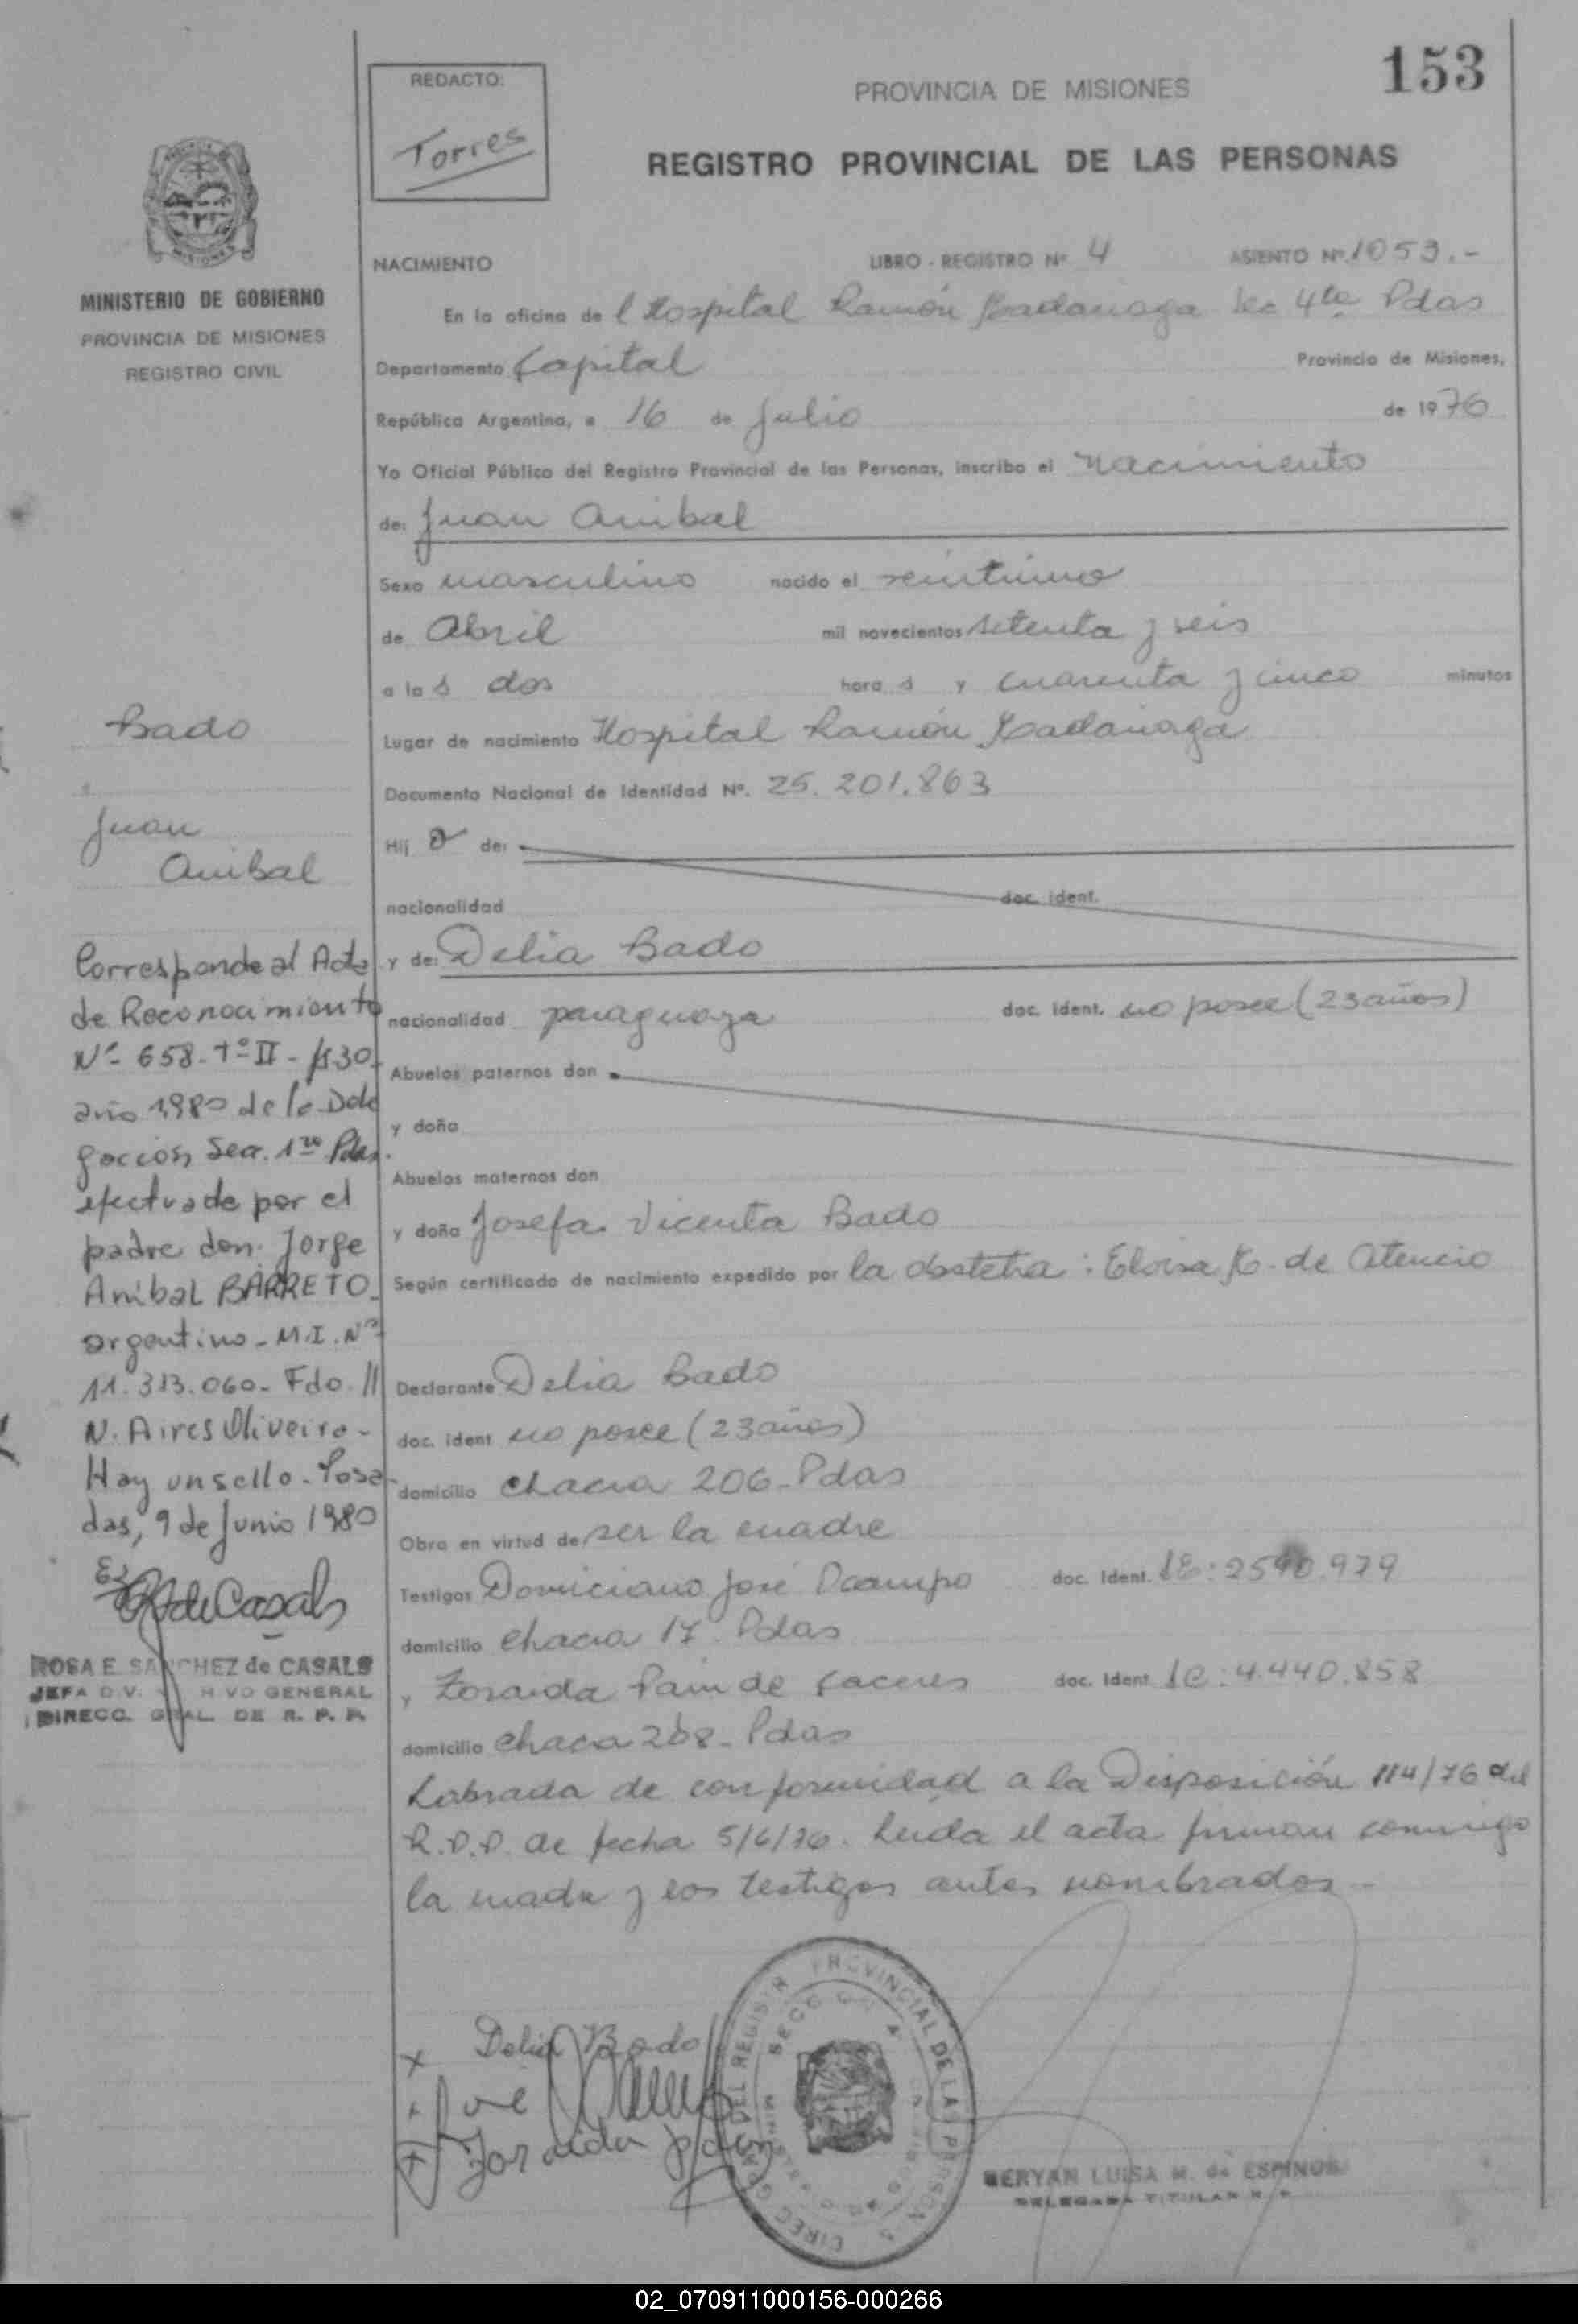 153
REDACTO:
Torres
PROVINCIA DE MISIONES
REGISTRO PROVINCIAL DE LAS PERSONAS
MINISTERIO DE GOBIERNO
PROVINCIA DE MISIONES
REGISTRO CIVIL
NACIMIENTO LIBRO - REGISTRO Nº 4 ASIENTO Nº 1053.-
En la oficina de l Hospital Ramón Madariaga Sec 4ta Pdas
Departamento Capital Provincia de Misiones,
República Argentina, a 16 de Julio de 1976
Yo Oficial Público del Registro Provincial de las Personas, inscribo el nacimiento
de: Juan Anibal
Sexo masculino nacido el veintiuno
de Abril mil novecientos setenta y seis
a la s dos hora s y cuarenta y cinco minutos
Lugar de nacimiento Hospital Ramón Madariaga
Documento Nacional de Identidad Nº. 25.201.863
Hij o de:
nacionalidad doc. ident.
y de: Delia Bado
nacionalidad paraguaya doc. ident. no posee (23 años)
Abuelos paternos don
y doña
Abuelos maternos don
y doña Josefa Vicenta Bado
Según certificado de nacimiento expedido por la obstetra: Eloisa K. de Atencio
Declarante Delia Bado
doc. ident no posee (23 años)
domicilio chacra 206 - Pdas
Obra en virtud de ser la madre
Testigos Domiciano José Ocampo doc. Ident. LE: 2540.979
domicilio chacra 17 Pdas
y Zoraida Pain de Caceres doc. Ident. lc: 4.440.858
domicilio chacra 268 - Pdas
Labrada de conformidad a la Disposición 114/76 del
R.P.P. de fecha 5/6/76. Leida el acta firman conmigo
la madre y los testigos antes nombrados -
Bado
Juan
Anibal
Corresponde al Acta
de Reconocimiento
Nº- 658 - Tº II - fs 30 -
año 1980 de la Dele
gación Secc. 1ra Pdas.
efectuada por el
padre don Jorge
Anibal BARRETO -
argentino - M.I. Nº
11.313.060 - Fdo. //
N. Aires Oliveira -
Hay un sello - Posa
das, 9 de Junio 1980
de Casals
ROSA E. SANCHEZ de CASALS
JEFA DIV. ARCHIVO GENERAL
DIRECC. GRAL. DE R. P. P.
x Delia Bado
José Ocampo
Zoraida Pain
DIREC. GRAL. DEL REGISTR PROVINCIAL DE LAS PERSONAS
SECCION 4ª
MERYAN LUISA M. de ESPINOSA
DELEGADA TITULAR R. P.
02_070911000156-000266